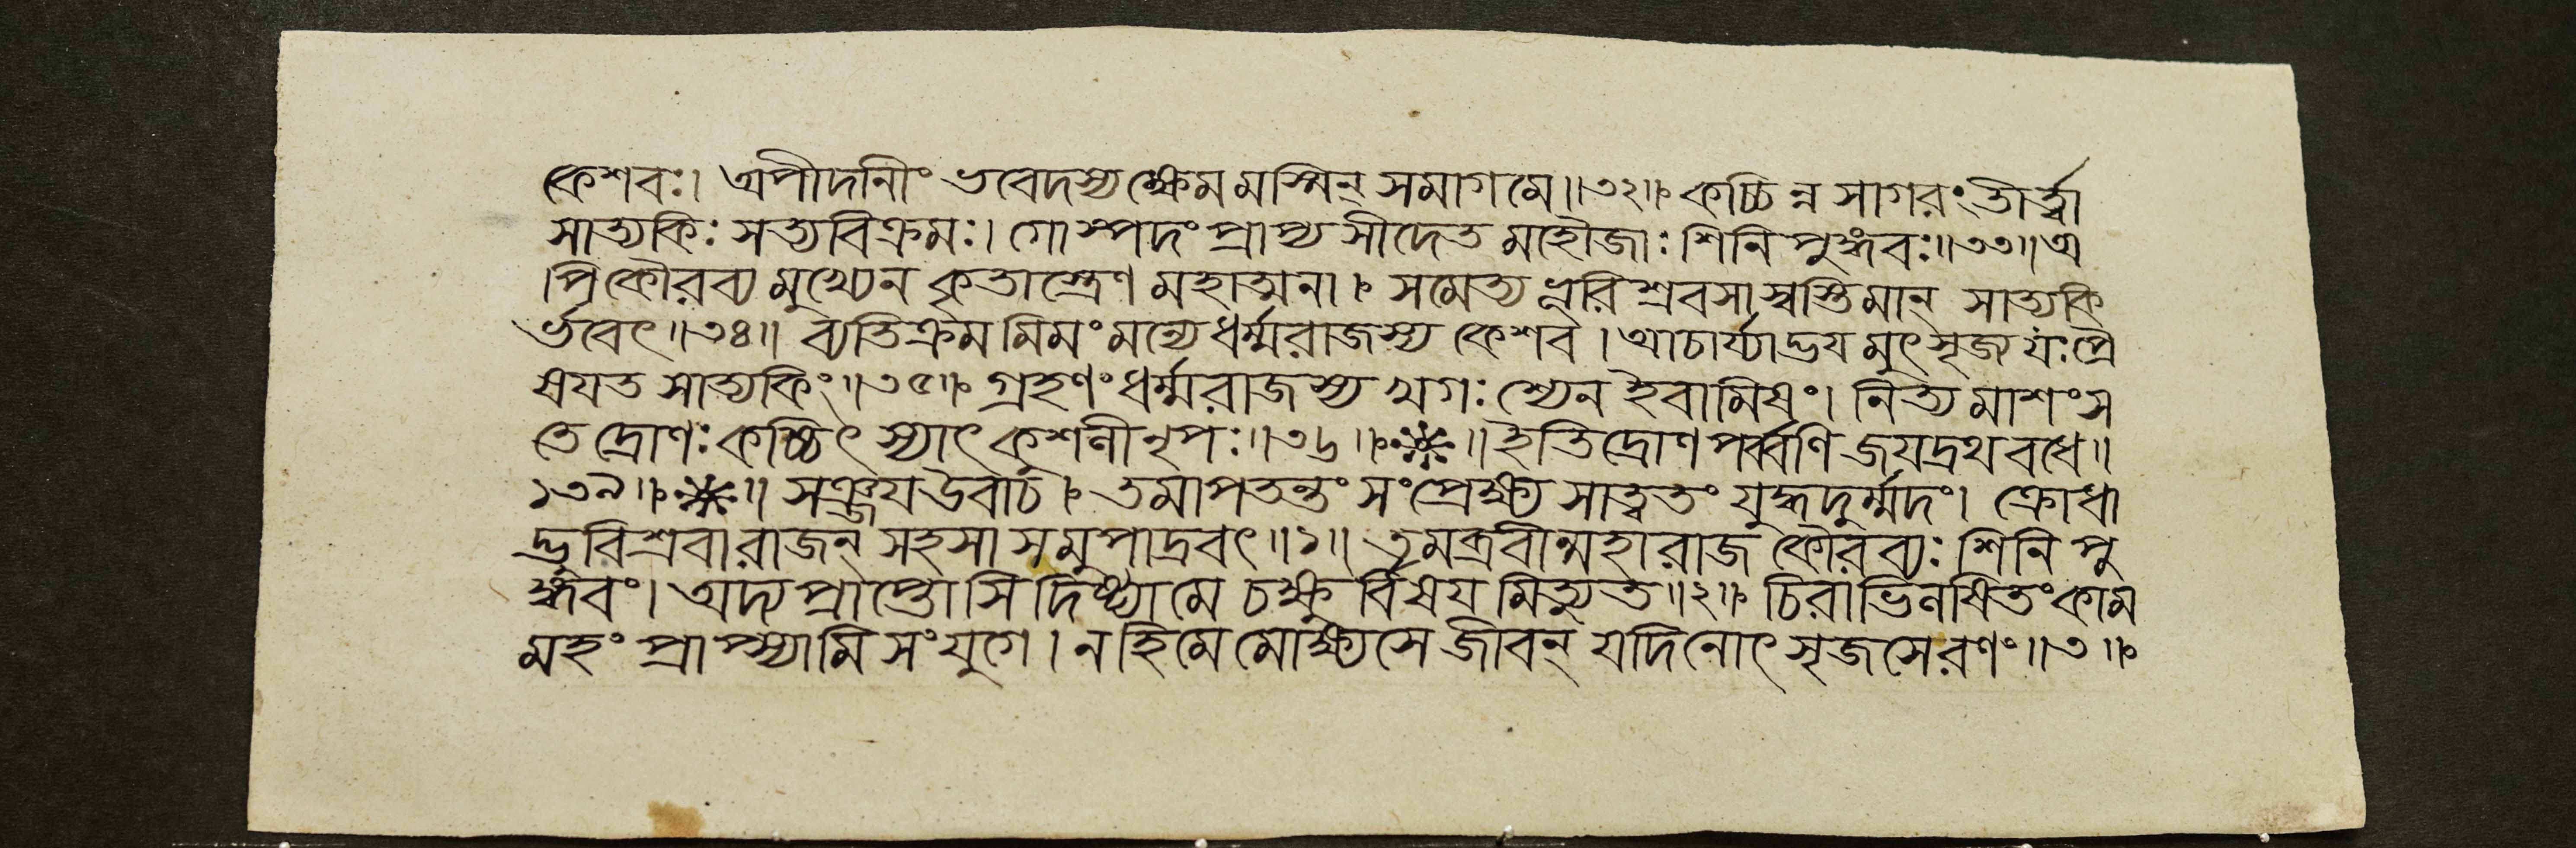 কেশবঃ। অপীদনীং ভবেদস্যক্ষেমমস্মিন্ সমাগমে॥৩২॥ কচ্চিন্ন সাগরংতীর্ত্ত্বা
সাত্যকিঃ সত্যবিক্রমঃ। গোস্পদংপ্রাপ্য সীদেত মহৌজাঃ শিনি পুঙ্গবঃ॥৩৩॥অ
পিকৌরব্য মুখ্যেন কৃতাস্ত্রেণ মহাত্মনা। সমেত্য ভূরি শ্রবসা স্বস্তিমান্ সাত্যকি
র্ভবেৎ॥৩৪॥ ব্যতিক্রম মিমং মন্যে ধর্ম্মরাজস্য কেশব। আচার্য্যাদ্ভয মুৎসৃজ্য যঃপ্রৈ
ষযত সাত্যকিং॥৩৫॥ গ্রহণং ধর্ম্মরাজস্য খগঃ শ্যেন ইবামিষং। নিত্য মাশংস
তে দ্রোণঃকচ্চিৎ স্যাৎ কুশলীনৃপঃ॥৩৬॥ ইতিদ্রোণপর্ব্বণি জযদ্রথ বধে॥
১৩৯॥ সঞ্জয উবাচ। তমাপতন্তং সংপ্রেক্ষ্য সাত্বতং যুদ্ধদুর্ম্মদং। ক্রোধা
দ্ভূরিশ্রবারাজন্ সহসা সমুপাদ্রবৎ॥১॥ তমব্রবীন্মহারাজ কৌরব্যঃ শিনি পু
ঙ্গবং। অদ্যপ্রাপ্তোসি দিষ্ট্যামে চক্ষুর্বিষয মিত্যুত॥২॥ চিরাভিলষিতংকাম
মহং প্রাপ্স্যামি সংযুগে। নহিমে মোক্ষ্যসে জীবন্ যদিনোৎসৃজসেরণং॥৩॥